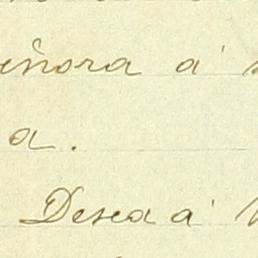 eñora á
a.
Desea á